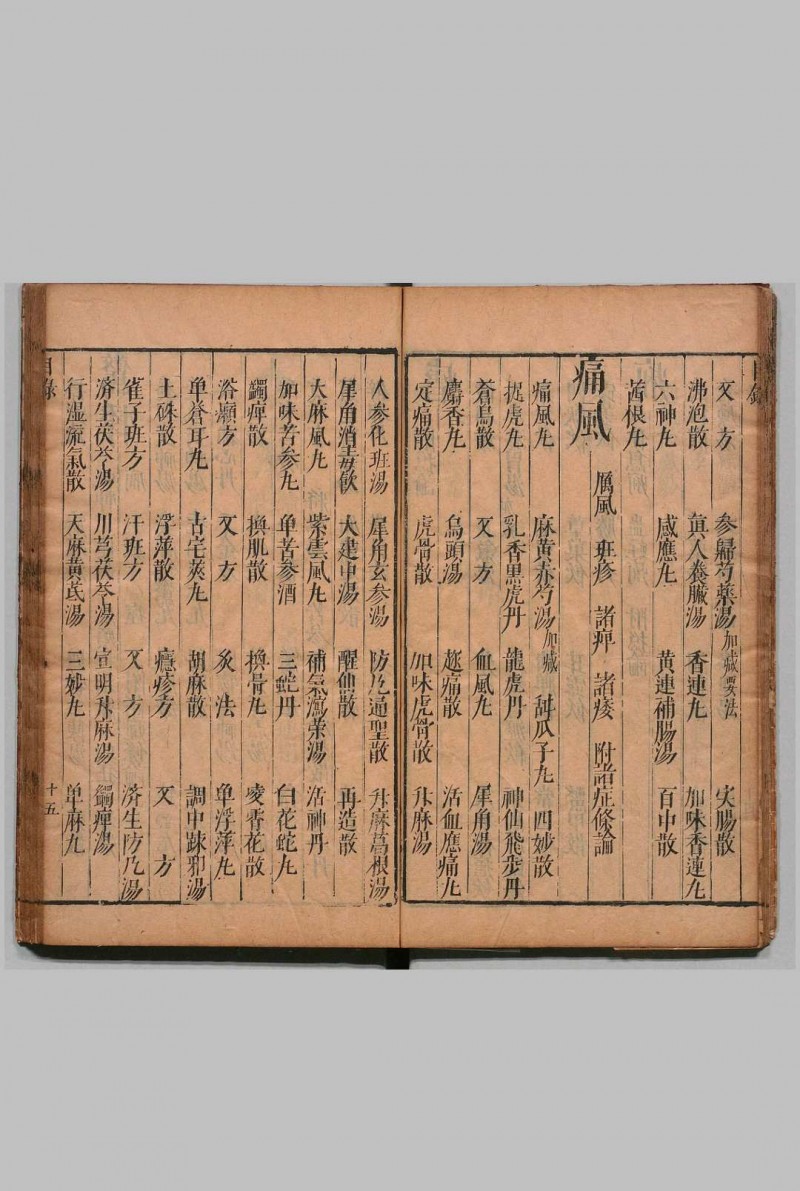 目錄
又方　參歸芍藥湯加減要法　実腸散
沸泡散　眞人養臟湯　香連丸　加味香連丸
六神丸　感應丸　黄連補腸湯　百中散
茜根丸
痛風　厲風　班疹　諸痺　諸痿　附諸症條論
痛風丸　麻黄赤芍湯加減　甜瓜子丸　四妙散
捉虎丸　乳香黒虎丹　龍虎丹　神仙飛步丹
蒼烏散　又方　血風丸　犀角湯
麝香丸　烏頭湯　趂痛散　活血應痛丸
定痛散　虎骨散　加味虎骨散　升麻湯
人参化班湯　犀角玄参湯　防風通聖散　升麻葛根湯
犀角消毒飲　大建中湯　醒仙散　再造散
大麻風丸　紫雲風丸　補氣瀉荣湯　活神丹
加味苦参丸　单苦参酒　三蛇丹　白花蛇丸
蠲痺散　換肌散　換骨丸　凌霄花散
浴癩方　又方　灸法　单浮萍丸
单蒼耳丸　皂莢丸　胡麻散　調中踈邪湯
土硃散　浮萍散　癮疹方　又方
雀子班方　汗班方　又方　済生防風湯
済生茯苓湯　川芎茯苓湯　宣明升麻湯　蠲痺湯
行湿流氣散　天麻黄芪湯　三妙丸　单麻丸
目錄　十五